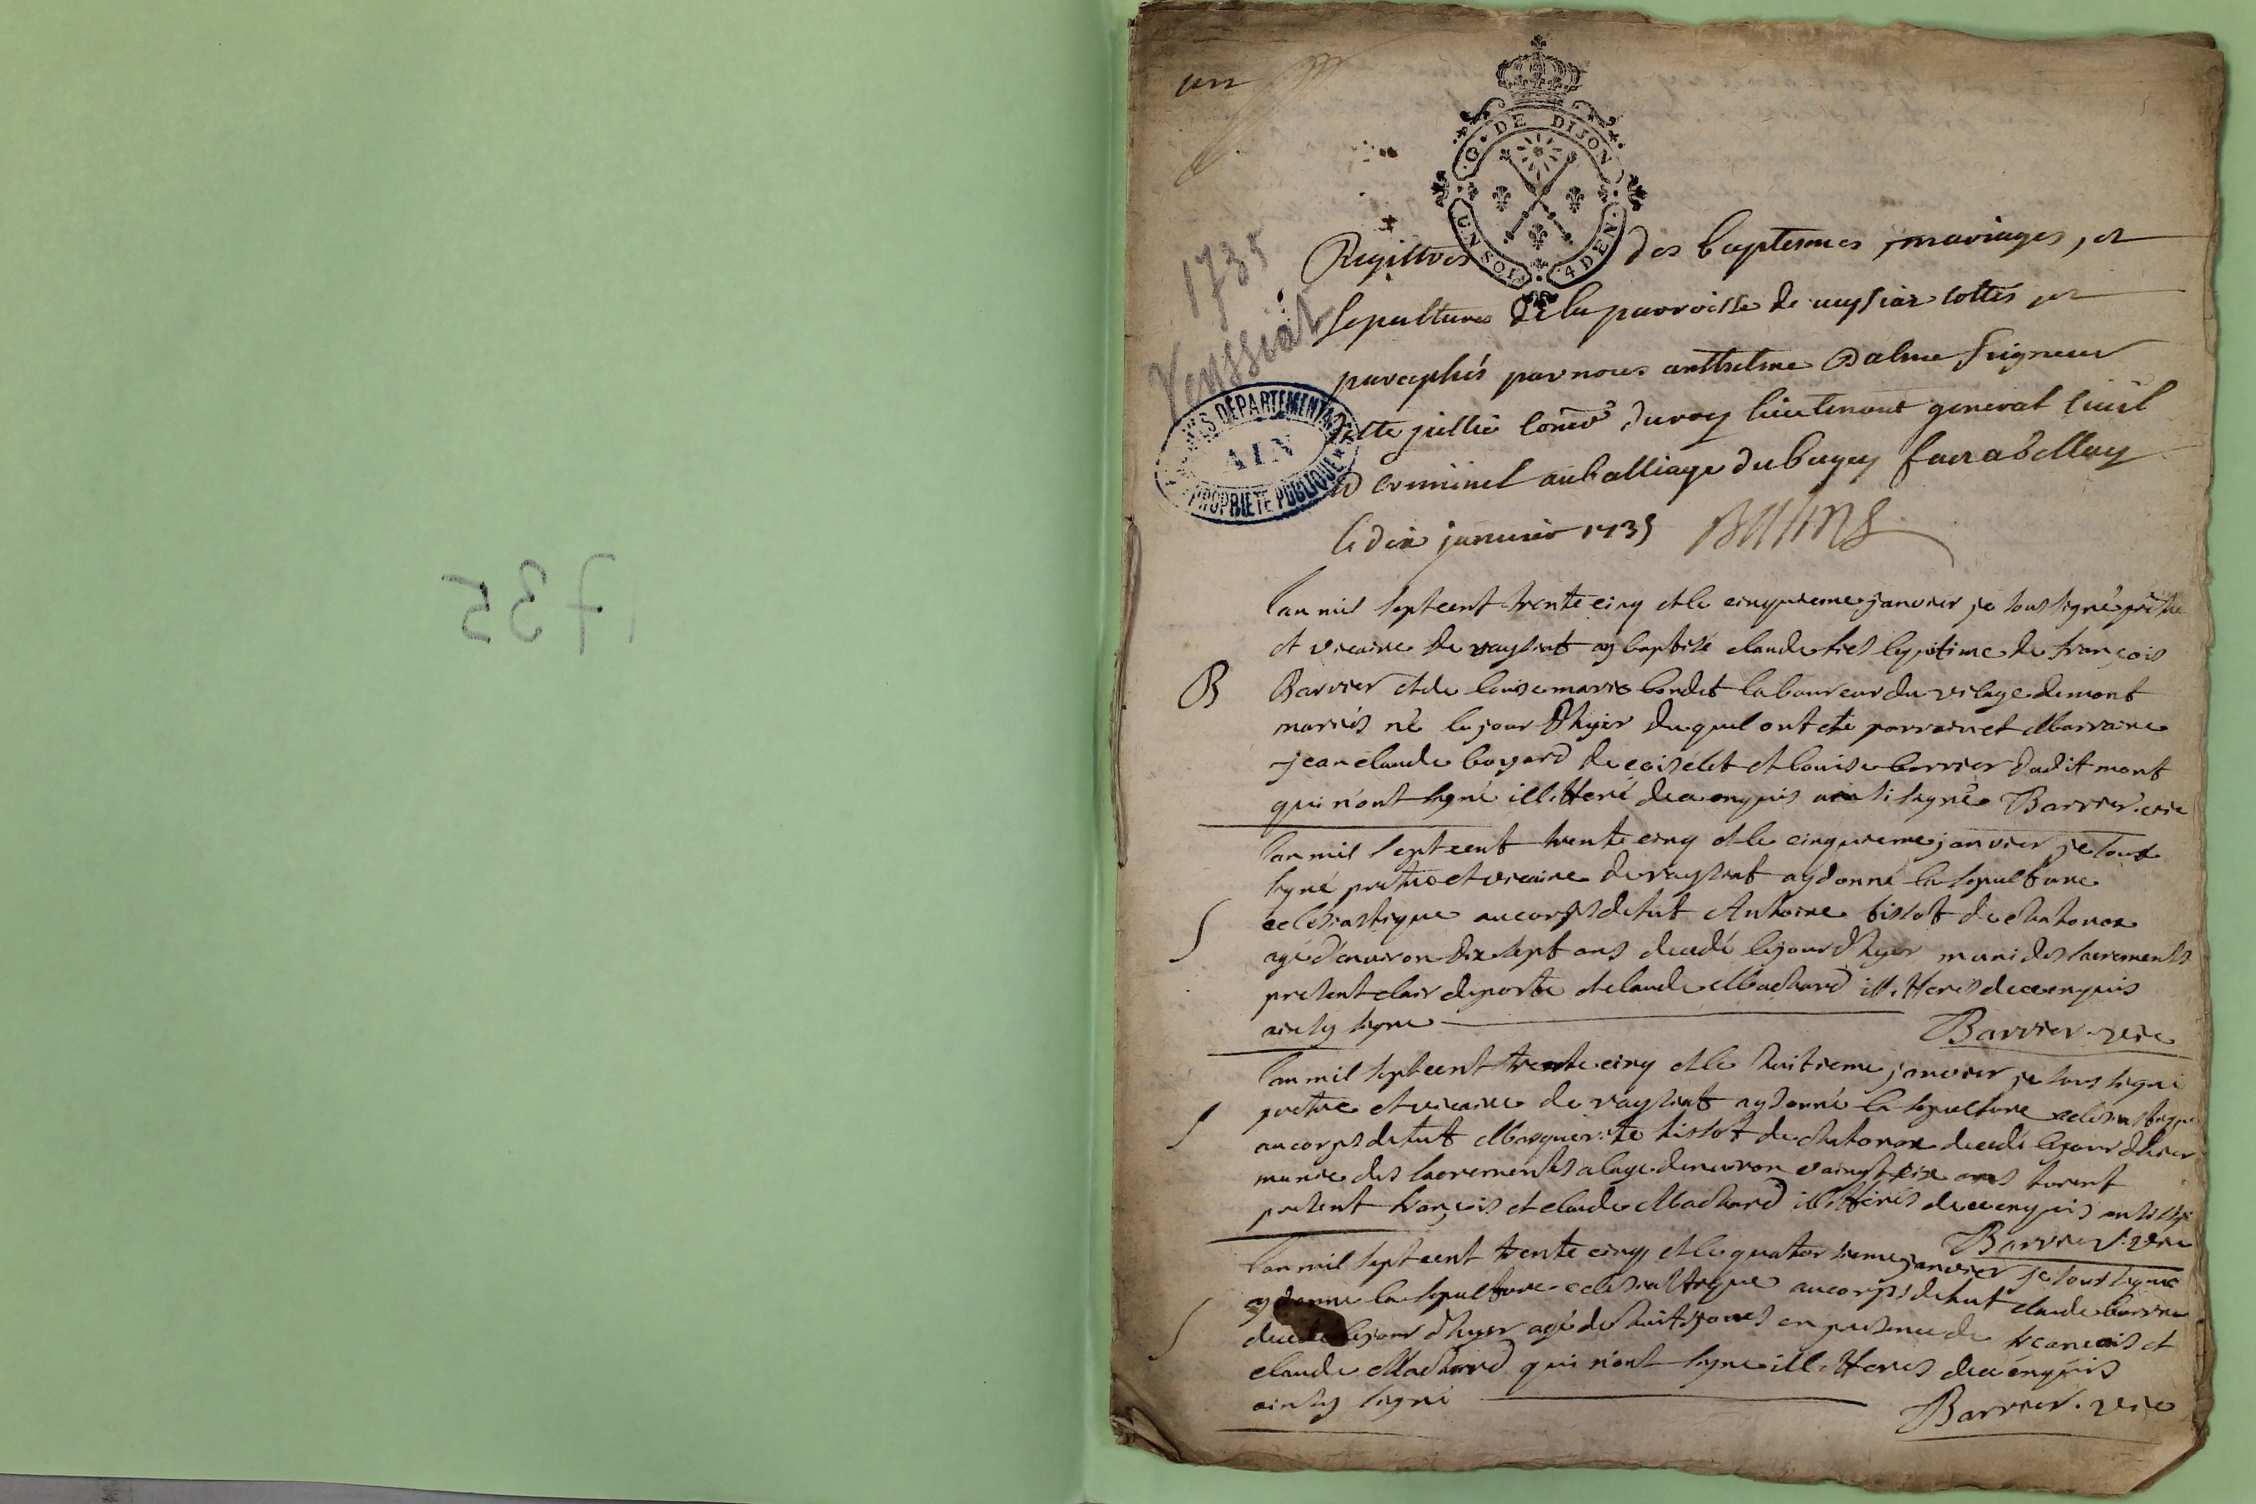 un
G. DE DIJON
UN SOL 4 DEN.
1735
Veyssiat
ARCHIVES DEPARTEMENTALES
AIN
PROPRIETE PUBLIQUE
1735
Registres des baptesmes, mariages, et
sepultures de la parroisse de veysiat cottes et
paraphés par nous anthelme Balme seigneur
criminel au balliage du bugey
lieutenant general civil
le dix janvier 1735 Balme
Lan mil sept cent trente cinq et le cinquieme janvier je soussigné prêtre
et vicaire de vaysiat ay baptisé claude fils legitime de françois
B
Barrier et de louise marie bondet laboureur du vilage de mont
mariés né le jour d'hyer duquel ont eté parrain et Marraine
jean claude boyard de coiselet et louise barrier dudit mont
qui n'ont signé illitteré de ce enquis ainsi signé Barrier vic
Lan mil sept cent trente cinq et le cinquieme janvier je sous
signé prêtre et vicaire de vaysiat ay donné la sepulture
S
eclesiastique au corps de fut Antoine tissot de chatonax
agé d'environ dix sept ans decedé le jour d'hyer muni des sacrements
present clair deporte et claude Machard illiterés de ce enquis
ainsy signé Barrier vic
Lan mil sept cent trente cinq et le huitieme janvier je sous signé
prêtre et vicaire de vaysiat ay donné la sepulture eclesiastique
S
au corps de fut Marguerite tissot de chatonax decedé le jour d'hier
munie des sacrements a l'age d'environ vaingt six ans furent
present françois et claude Machard illitterés de ce enquis ainsi signé
Barrier vic
Lan mil sept cent trente cinq et le quatorsieme janvier je sous signé
ay donné la sepulture eclesiastique au corps de fut claude barrier
S
decedé le jour d'hyer agé de huit jours en presence de françois et
claude Machard qui n'ont signé illitteres de ce enquis
ainsy signé Barrier vic